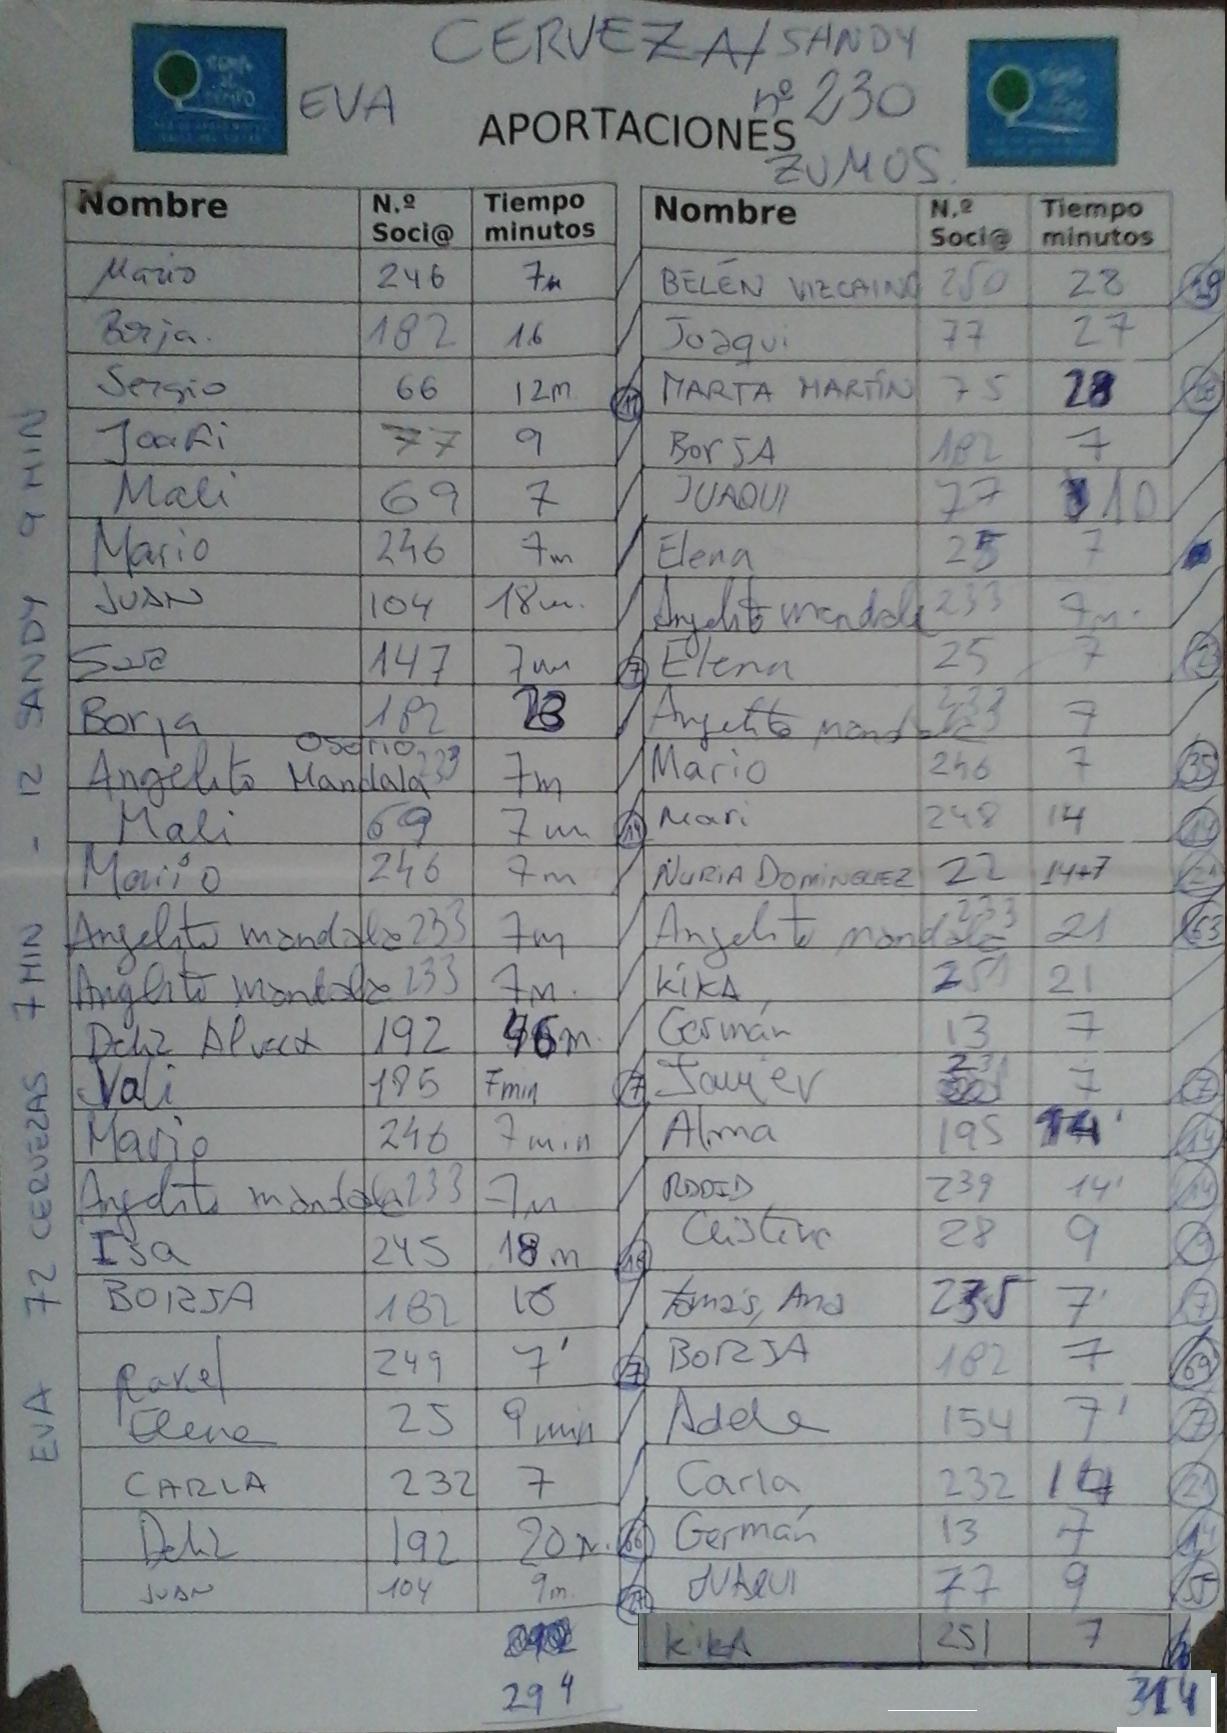 CERVEZA/SANDY
EVA nº 230
APORTACIONES
ZUMOS.
EVA 72 CERVEZAS 7 MIN - 12 SANDY 9 MIN
Nombre N.º Soci@ Tiempo minutos
Mario 246 7m
Borja. 182 16
Sergio 66 12m
Joaki 77 9
Mali 69 7
Mario 246 7m
JUAN 104 18m.
Sara 147 7m
Borja 182
Angelito Osorio Mandala 233 7m
Mali 69 7m
Mario 246 7m
Angelito mandala 233 7m
Anglito mandala 233 7m.
Deliz Alvarez 192 46m.
Vali 185 7min
Mario 246 7min
Angelito mandala 233 7m
Isa 245 18m
BORJA 182 16
Rakel 249 7'
Elena 25 9min
CARLA 232 7
Deliz 192 20m.
JUAN 104 9m.
294
Nombre N.º Soci@ Tiempo minutos
BELÉN VIZCAINO 250 28
Joaqui 77 27
MARTA MARTÍN 75 28
BORJA 182 7
JUAQUI 77 10
Elena 25 7
Angelito mandala 233 7m.
Elena 25 7
Angelito mandala 233 7
Mario 246 7
Mari 248 14
NURIA DOMINGUEZ 22 14+7
Angelito mandala 233 21
KIKA 251 21
Germán 13 7
Javier 231 7
Alma 195 14'
ROCIO 239 14'
Cristina 28 9
Tomás, Ana 235 7'
BORJA 182 7
Adela 154 7'
Carla 232 14
Germán 13 7
JUAQUI 77 9
KIKA 251 7
314